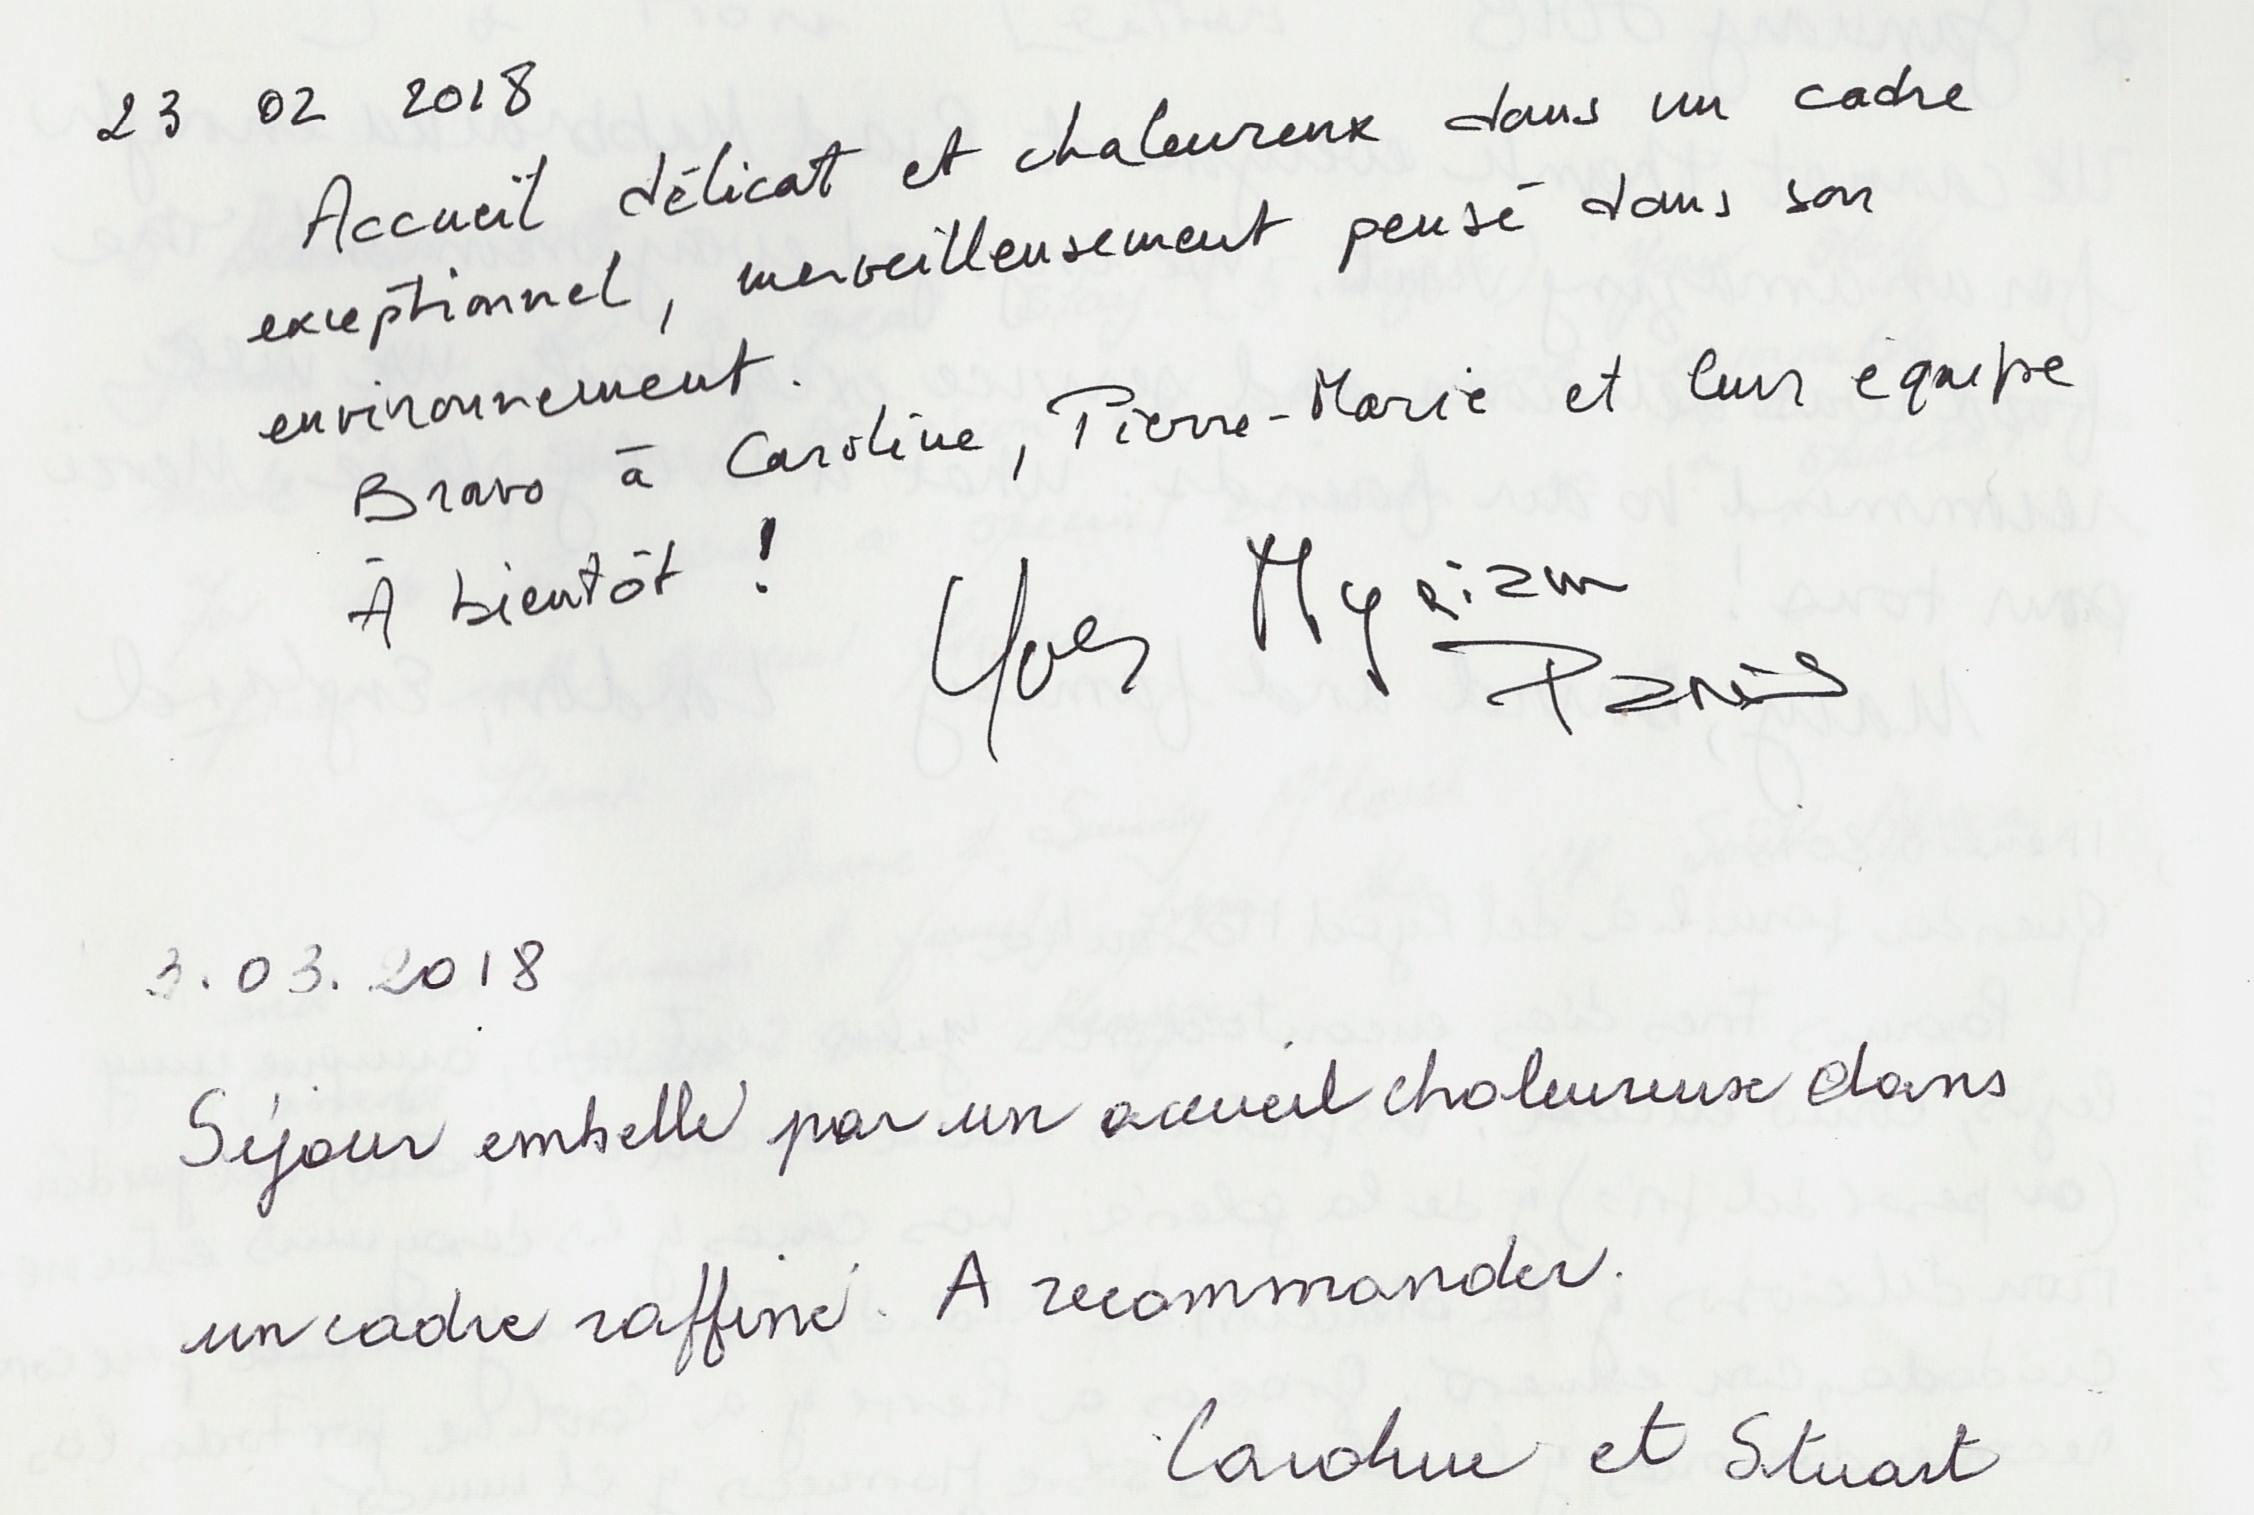 23 02 2018
Accueil délicat et chaleureux dans un cadre
exceptionnel, merveilleusement pensé dans son
environnement.
Bravo à Caroline, Pierre-Marie et leur équipe
À bientôt !
Yves Myriam
Paris
3.03.2018
Séjour embelli par un accueil chaleureux dans
un cadre raffiné. A recommander.
Caroline et Stuart